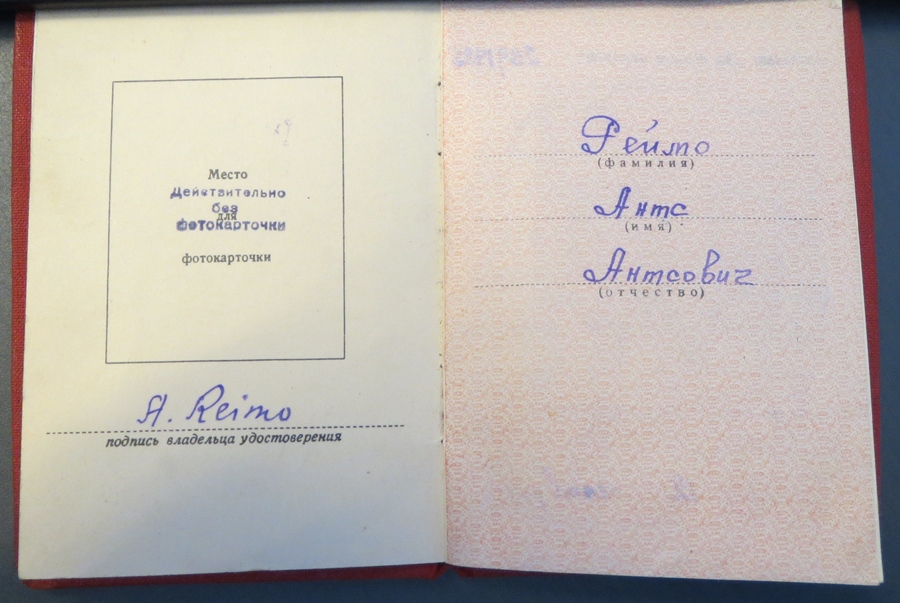 Место
Действительно
без
для
фотокарточки
фотокарточки
A. Reimo
подпись владельца удостоверения
Реймо
(фамилия)
Антс
(имя)
Антсович
(отчество)